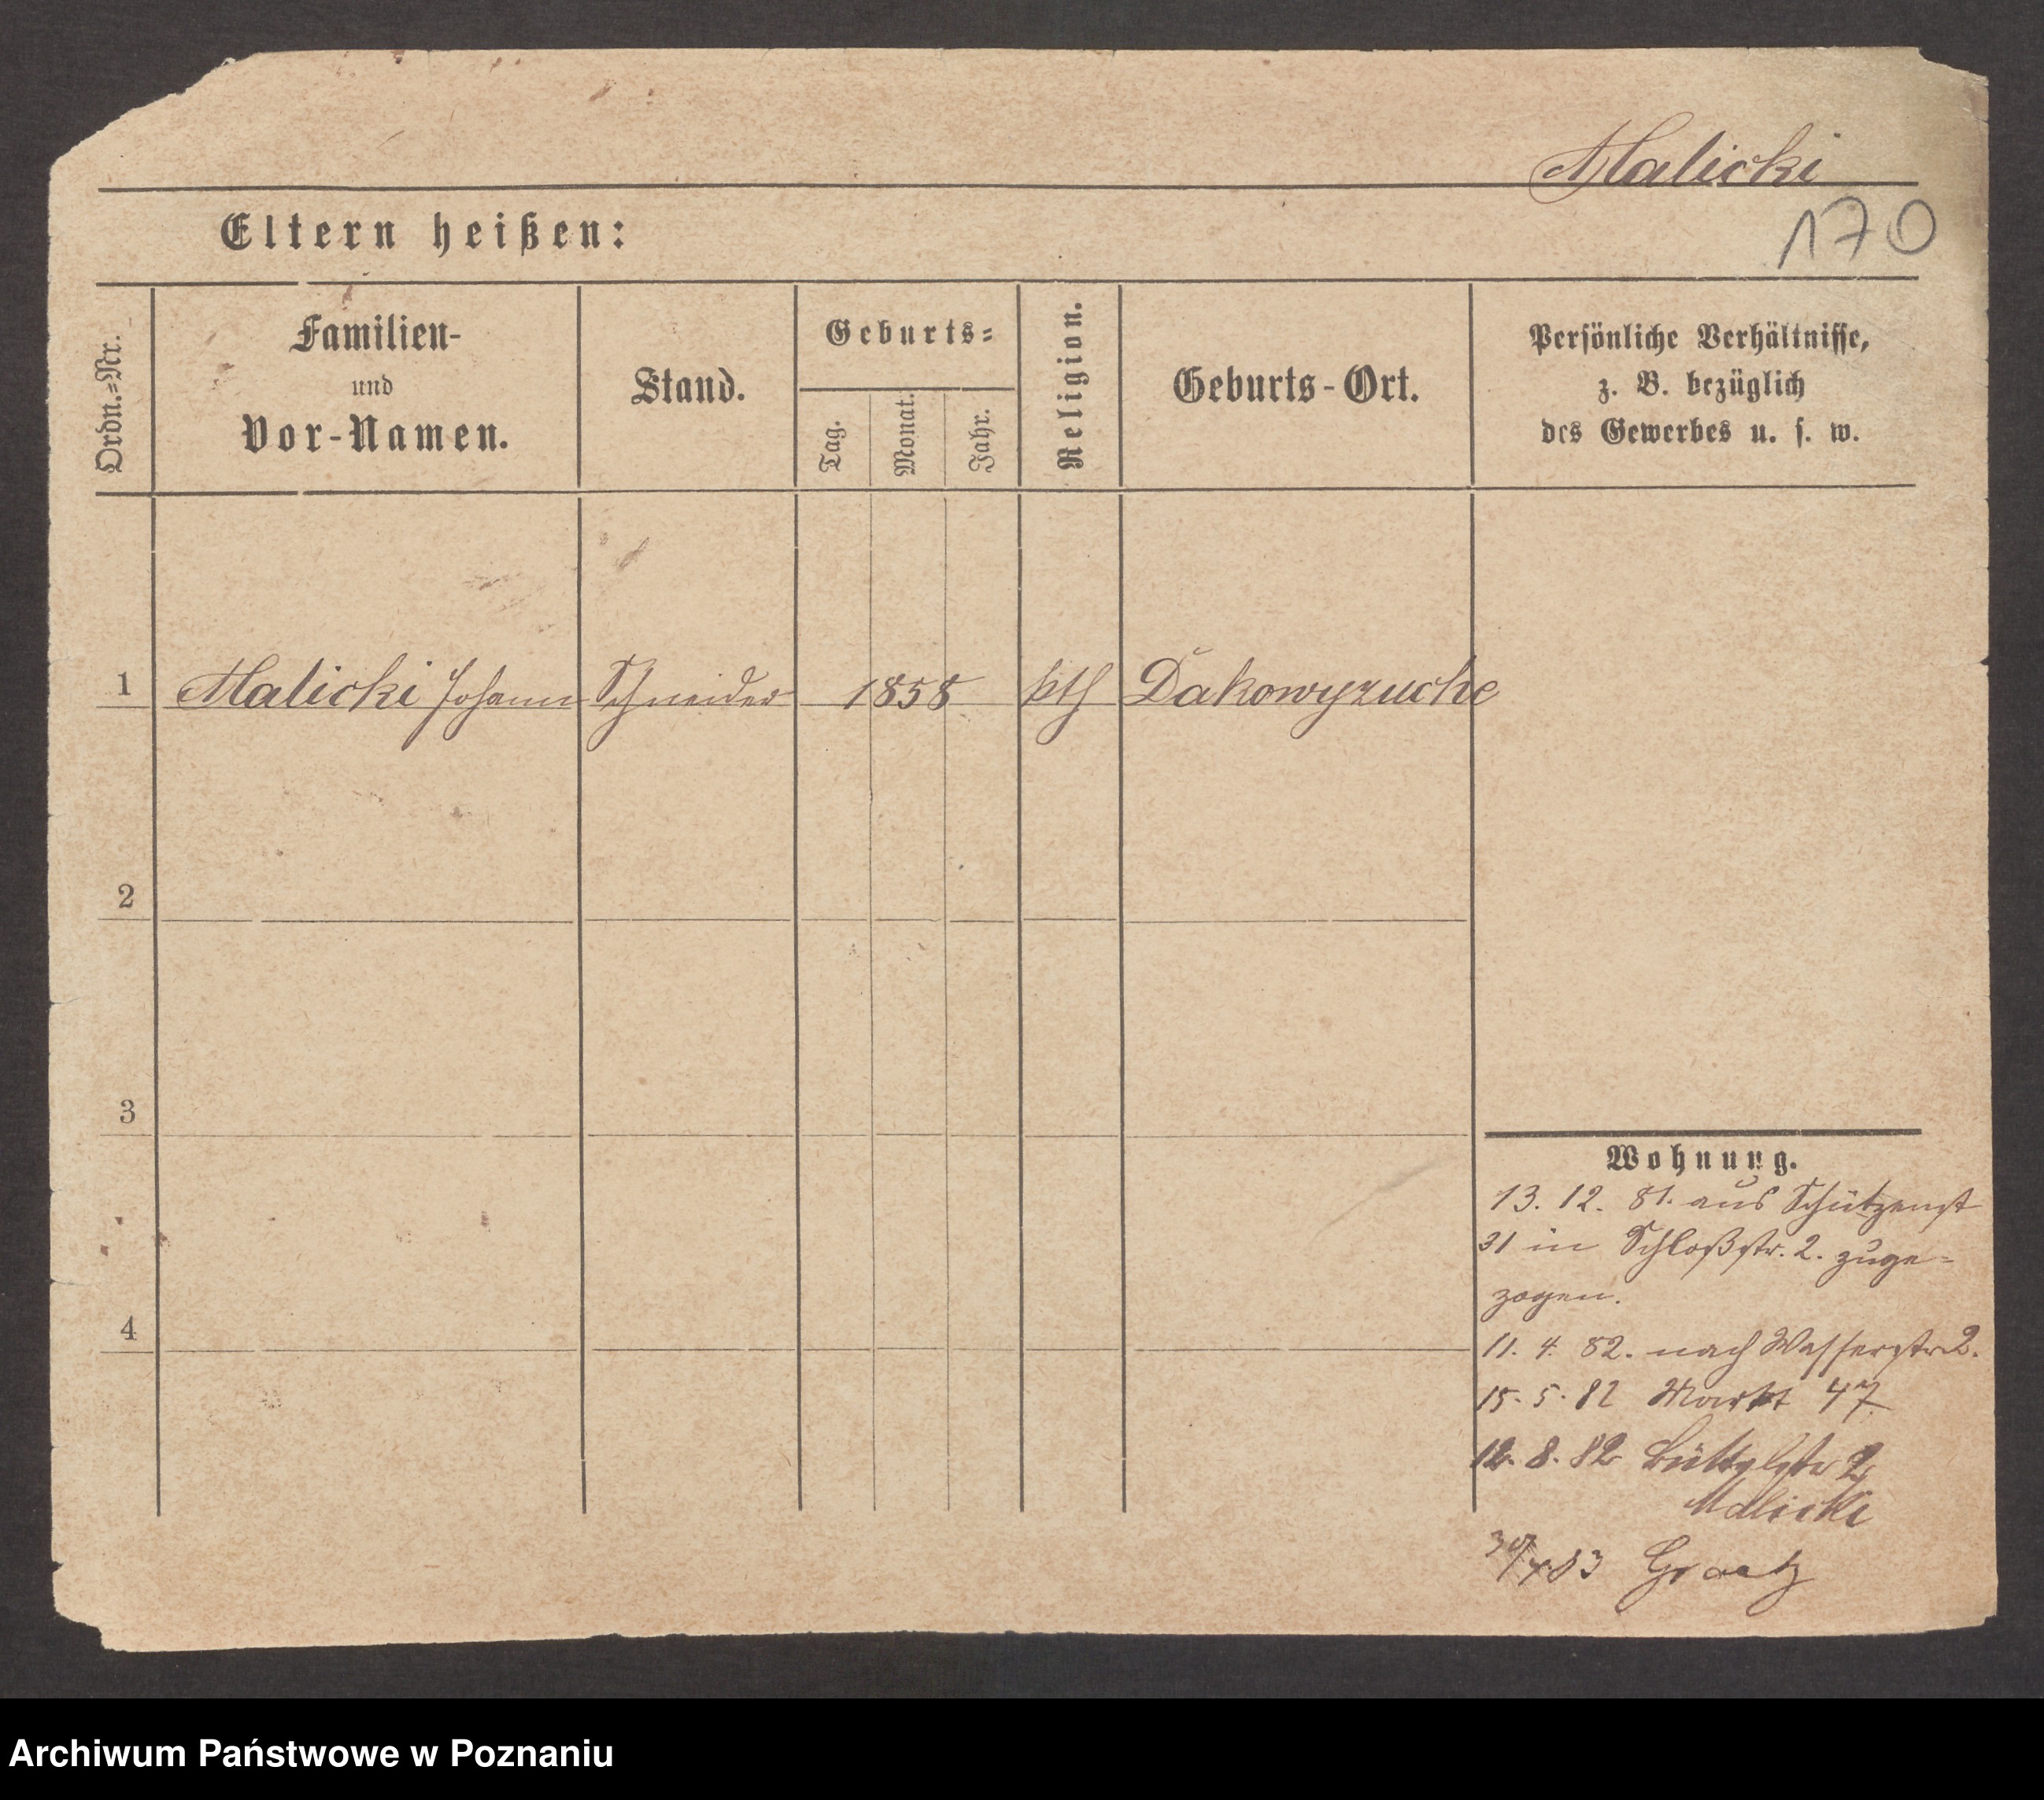 Malicki
170
Eltern heißen:
Ordn.=Nr.
Familien-
und
Vor-Namen.
Stand.
Geburts=
Tag.
Monat.
Jahr.
Religion.
Geburts-Ort.
Persönliche Verhältnisse,
z. B. bezüglich
des Gewerbes u. s. w.
1 Malicki Johann Schneider 1858 kth Dakowyzuche
2
3
4
Wohnung.
13. 12. 81. aus Schützenst
31 in Schloßstr. 2. zuge-
zogen.
11. 4. 82. nach Wasserstr 2.
15. 5. 82 Markt 47
12. 8. 82 Büttelstr 2
Malicki
30/4 83 Graetz
Archiwum Państwowe w Poznaniu